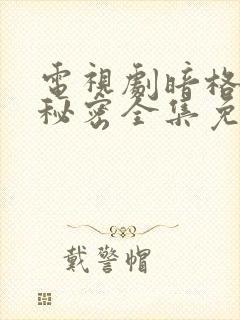 電視劇暗格
秘密全集免
戴警帽